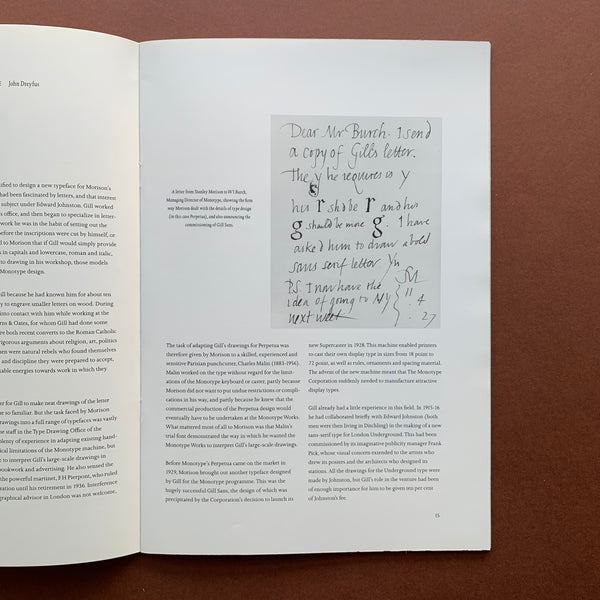 John Dreyfus
ified to design a new typeface for Morison's
had been fascinated by letters, and that interest
subject under Edward Johnston. Gill worked
's office, and then began to specialize in letter-
work he was in the habit of setting out the
before the inscriptions were cut by himself, or
d to Morison that if Gill would simply provide
n in capitals and lowercase, roman and italic,
to drawing in his workshop, those models
Monotype design.
ill because he had known him for about ten
y to engrave smaller letters on wood. During
into contact with him while working at the
rns & Oates, for whom Gill had done some
ere both recent converts to the Roman Catholic
rigorous arguments about religion, art, politics
men were natural rebels who found themselves
and discipline they were prepared to accept,
iable energies towards work in which they
er for Gill to make neat drawings of the letter
e so familiar. But the task faced by Morison
rawings into a full range of typefaces was vastly
e staff in the Type Drawing Office of the
plenty of experience in adapting existing hand-
ical limitations of the Monotype machine, but
to interpret Gill's large-scale drawings in
bookwork and advertising. He also sensed the
the powerful martinet, F H Pierpont, who ruled
sation until his retirement in 1936. Interference
graphical advisor in London was not welcome,
A letter from Stanley Morison to W I Burch,
Managing Director of Monotype, showing the firm
way Morison dealt with the details of type design
(in this case Perpetua), and also announcing the
commissioning of Gill Sans.
Dear Mr Burch. I send
a copy of Gill's letter.
The y he requires is y
g
his r shd be r and his
g should be more g. I have
asked him to draw a bold
sans serif letter. Yrs
SM
PS. I now have the
idea of going to NY
next week
11
4
. 27
The task of adapting Gill's drawings for Perpetua was
therefore given by Morison to a skilled, experienced and
sensitive Parisian punchcutter, Charles Malin (1883-1956).
Malin worked on the type without regard for the limit-
ations of the Monotype keyboard or caster, partly because
Morison did not want to put undue restrictions or compli-
cations in his way, and partly because he knew that the
commercial production of the Perpetua design would
eventually have to be undertaken at the Monotype Works.
What mattered most of all to Morison was that Malin's
trial font demonstrated the way in which he wanted the
Monotype Works to interpret Gill's large-scale drawings.
Before Monotype's Perpetua came on the market in
1929, Morison brought out another typeface designed
by Gill for the Monotype programme. This was the
hugely successful Gill Sans, the design of which was
precipitated by the Corporation's decision to launch its
new Supercaster in 1928. This machine enabled printers
to cast their own display type in sizes from 18 point to
72 point, as well as rules, ornaments and spacing material.
The advent of the new machine meant that The Monotype
Corporation suddenly needed to manufacture attractive
display types.
Gill already had a little experience in this field. In 1915-16
he had collaborated briefly with Edward Johnston (both
men were then living in Ditchling) in the making of a new
sans-serif type for London Underground. This had been
commissioned by its imaginative publicity manager Frank
Pick, whose visual concern extended to the artists who
drew its posters and the architects who designed its
stations. All the drawings for the Underground type were
made by Johnston, but Gill's role in the venture had been
of enough importance for him to be given ten per cent
of Johnston's fee.
15